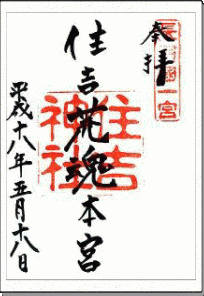 奉拝
長門國一宮
住吉荒魂本宮
住吉神社
平成十八年五月十八日